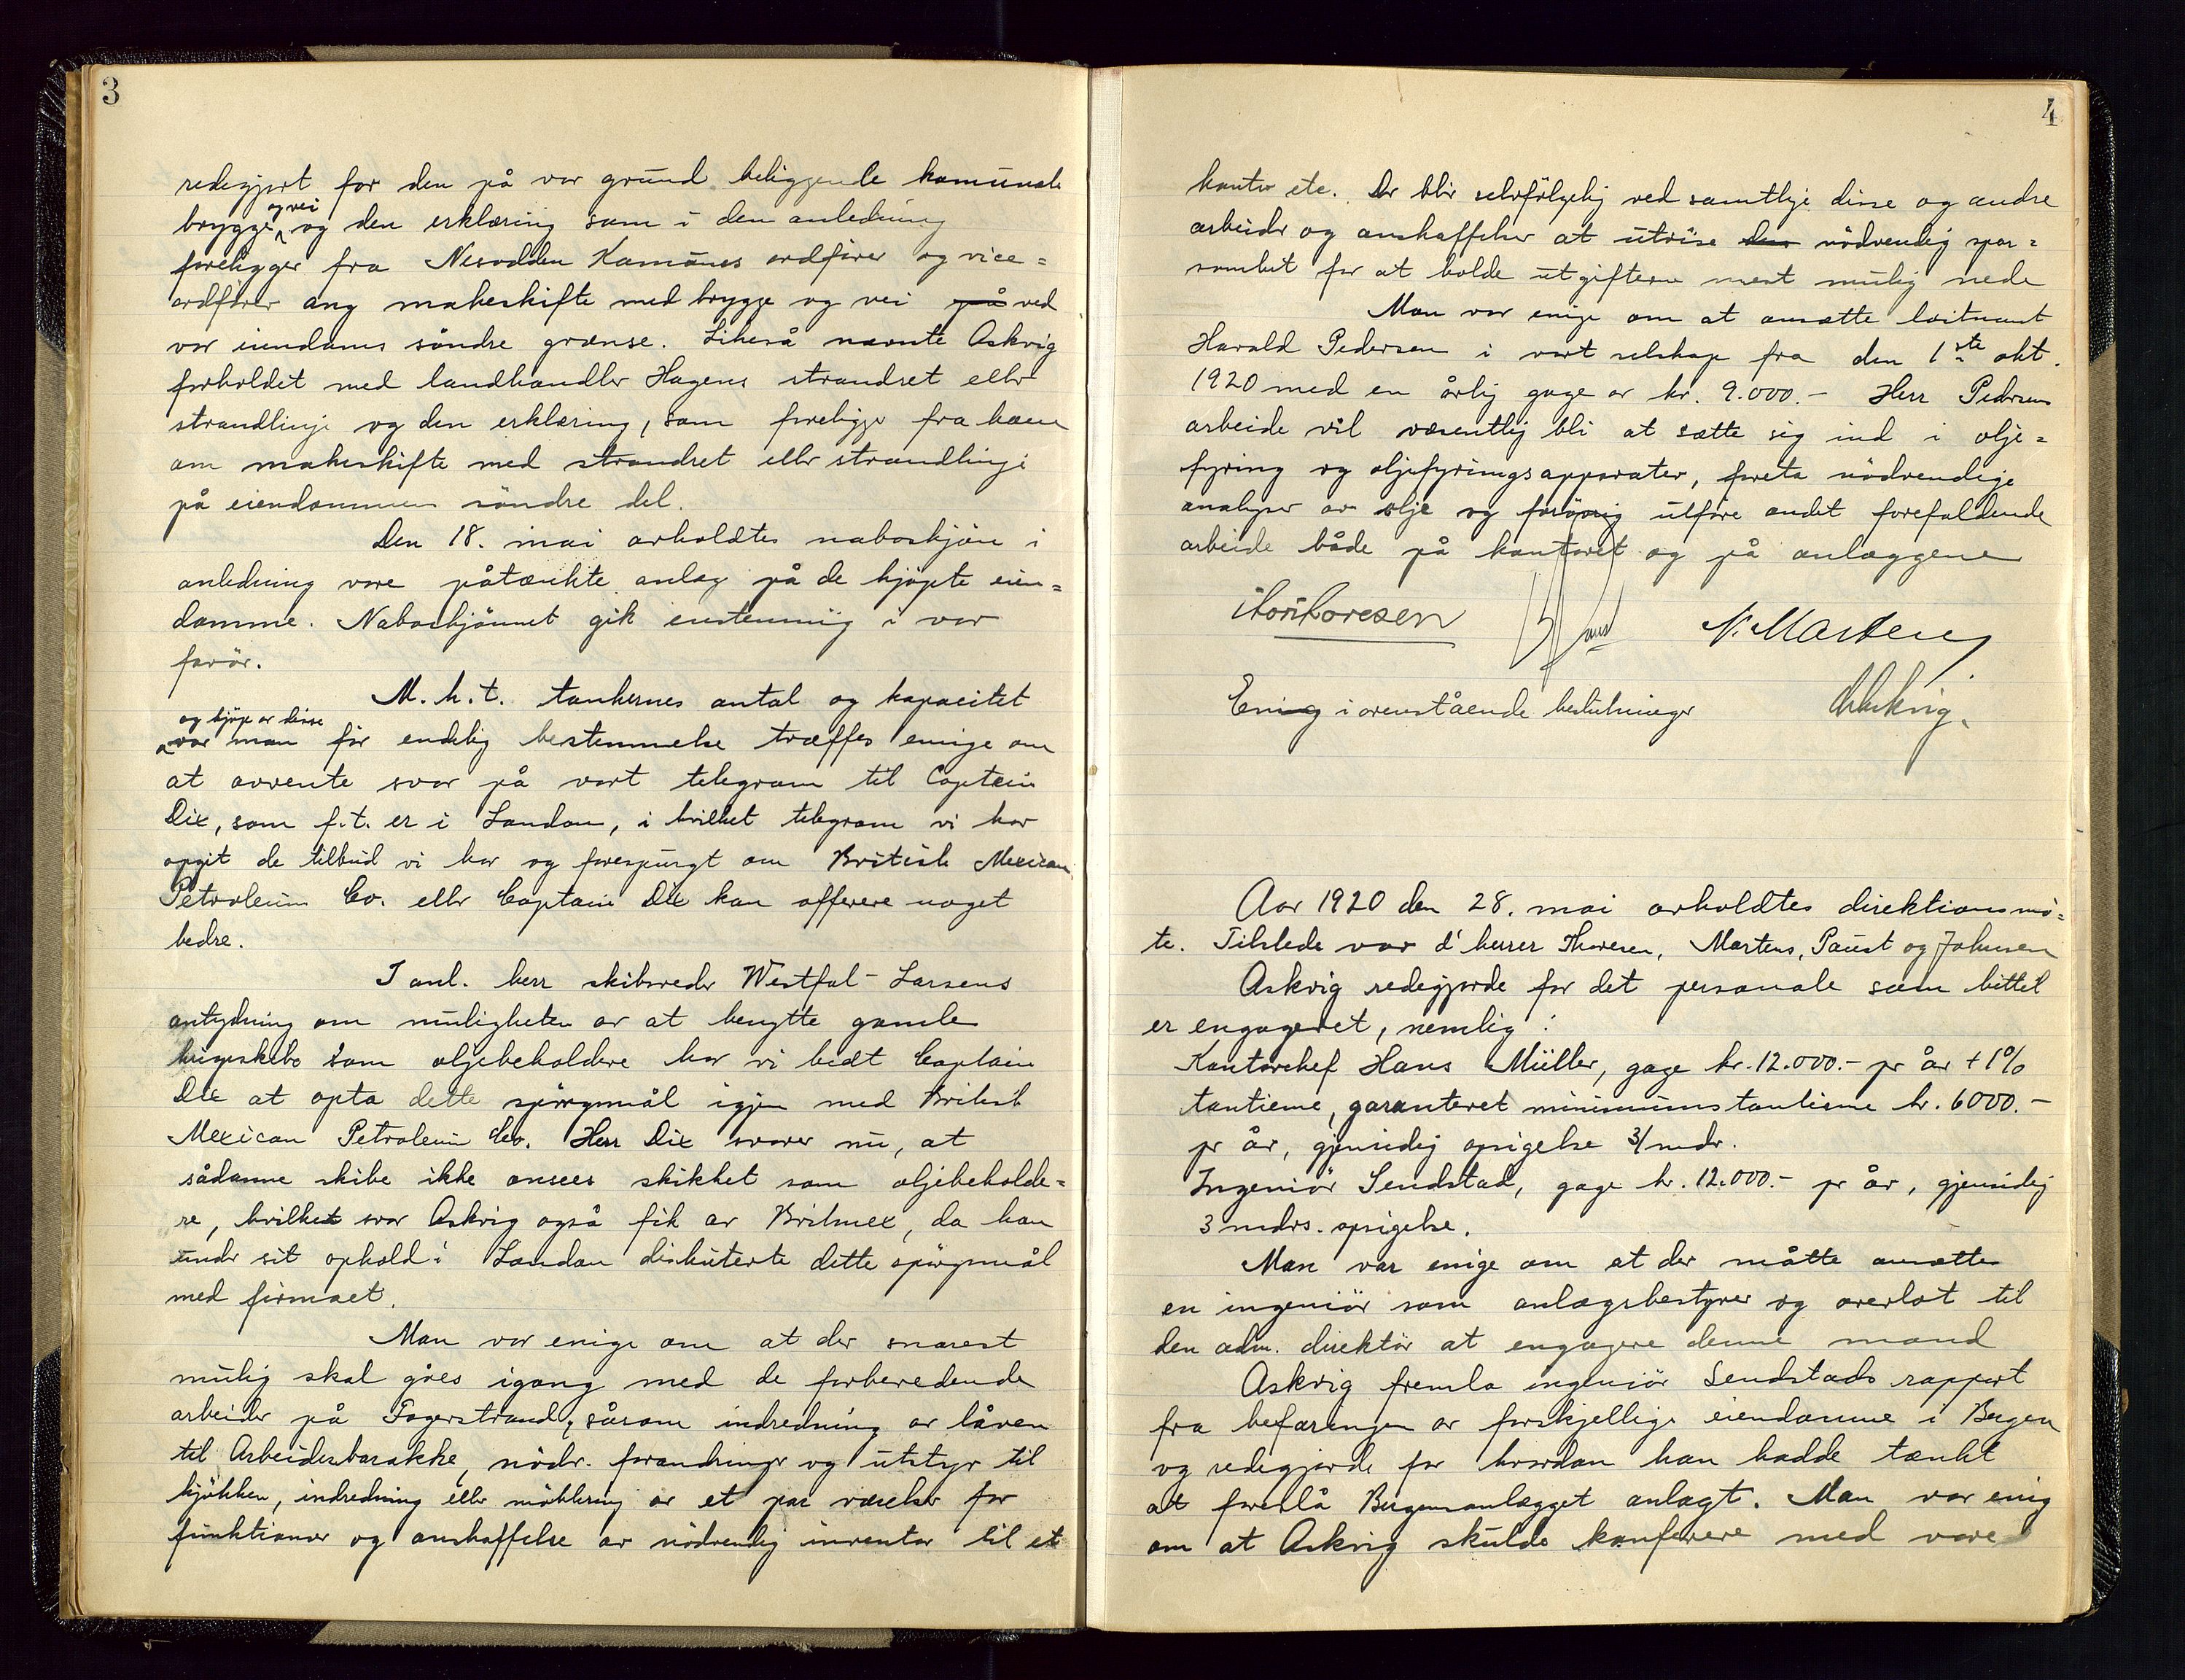 3
redegjort for den på vor grund beliggende komunale
brygge og vei og den erklæring som i den anledning
foreligger fra Nesodden Komunes ordfører og vice=
ordfører ang makeskifte med brygge og vei på ved
vor eiendoms söndre grænse. Likeså nævnte Askvig
forholdet med landhandler Hagens strandret eller
strandlinje og den erklæring, som foreligger fra ham
om makeskifte med strandret eller strandlinje
på eiendommens söndre del.
Den 18. mai avholdtes naboskjön i
anledning vore påtænkte anlæg på de kjöpte eien=
domme. Naboskjönnet gik enstemmig i vor
favör.
M.h.t. tankernes antal og kapacitet
og kjöp av disse
var man för endelig bestemmelse træffes enige om
at avvente svar på vort telegram til Captein
Dix, som f.t. er i London, i hvilket telegram vi har
opgit de tilbud vi har og forespurgt om British Mexican
Petroleum Co. eller Captain Dix kan offerere noget
bedre.
I anl. herr skibsreder Westfal-Larsens
antydning om muligheten av at benytte gamle
krigsskibe som oljebeholdere har vi bedt Captain
Dix at opta dette spörgsmål igjen med British
Mexican Petroleum Co. Herr Dix svarer nu, at
sådanne skibe ikke ansees skikket som oljebeholde=
re, hvilket svar Askvig også fik av Britmex, da han
under sit ophold i London diskuterte dette spörgsmål
med firmaet.
Man var enige om at der snarest
mulig skal gåes igang med de forberedende
arbeider på Fagerstrand, såsom indredning av låven
til Arbeiderbarakke, nödv. forandringer og utstyr til
kjökken, indredning eller möblering av et par værelser for
funktionær og anskaffelse av nödvendig inventar til et
4
kontor etc. Der blir selvfölgelig ved samtlige disse og andre
arbeider og anskaffelser at utvise den nödvendig spar=
somhet for at holde utgifterne mest mulig nede
Man var enige om at ansætte löitnant
Harald Pedersen i vort selskap fra den 1ste okt.
1920 med en årlig gage av kr. 9.000.- Herr Pedersens
arbeide vil væsentlig bli at sætte sig ind i olje=
fyring og oljefyringsapparater, foreta nödvendige
analyser av olje og forövrig utföre andet forefaldende
arbeide både på kontoret og på anlæggene
N. Martens
Enig i ovenstående beslutninger
Askvig.
Aar 1920 den 28. mai avholdtes direktionsmö=
te. Tilstede var d'herrer Thoresen, Martens, Paust og Johnsen
Askvig redegjorde for det personale som hittil
er engageret, nemlig:
Kontorchef Hans Müller, gage kr. 12.000.- pr år + 1%
tantieme, garanteret minimumstantieme kr. 6000.-
pr år, gjensidig opsigelse 3/mdr.
Ingeniör Sendstad, gage kr. 12.000.- pr år, gjensidig
3 mdrs. opsigelse.
Man var enige om at der måtte ansættes
en ingeniör som anlægsbestyrer og overlot til
den adm. direktör at engagere denne mand
Askvig fremla ingeniör Sendstads rapport
fra befaringen av forskjellige eiendomme i Bergen
og redegjorde for hvordan han hadde tænkt
at foreslå Bergensanlægget anlagt. Man var enig
om at Askvig skulde konferere med vore